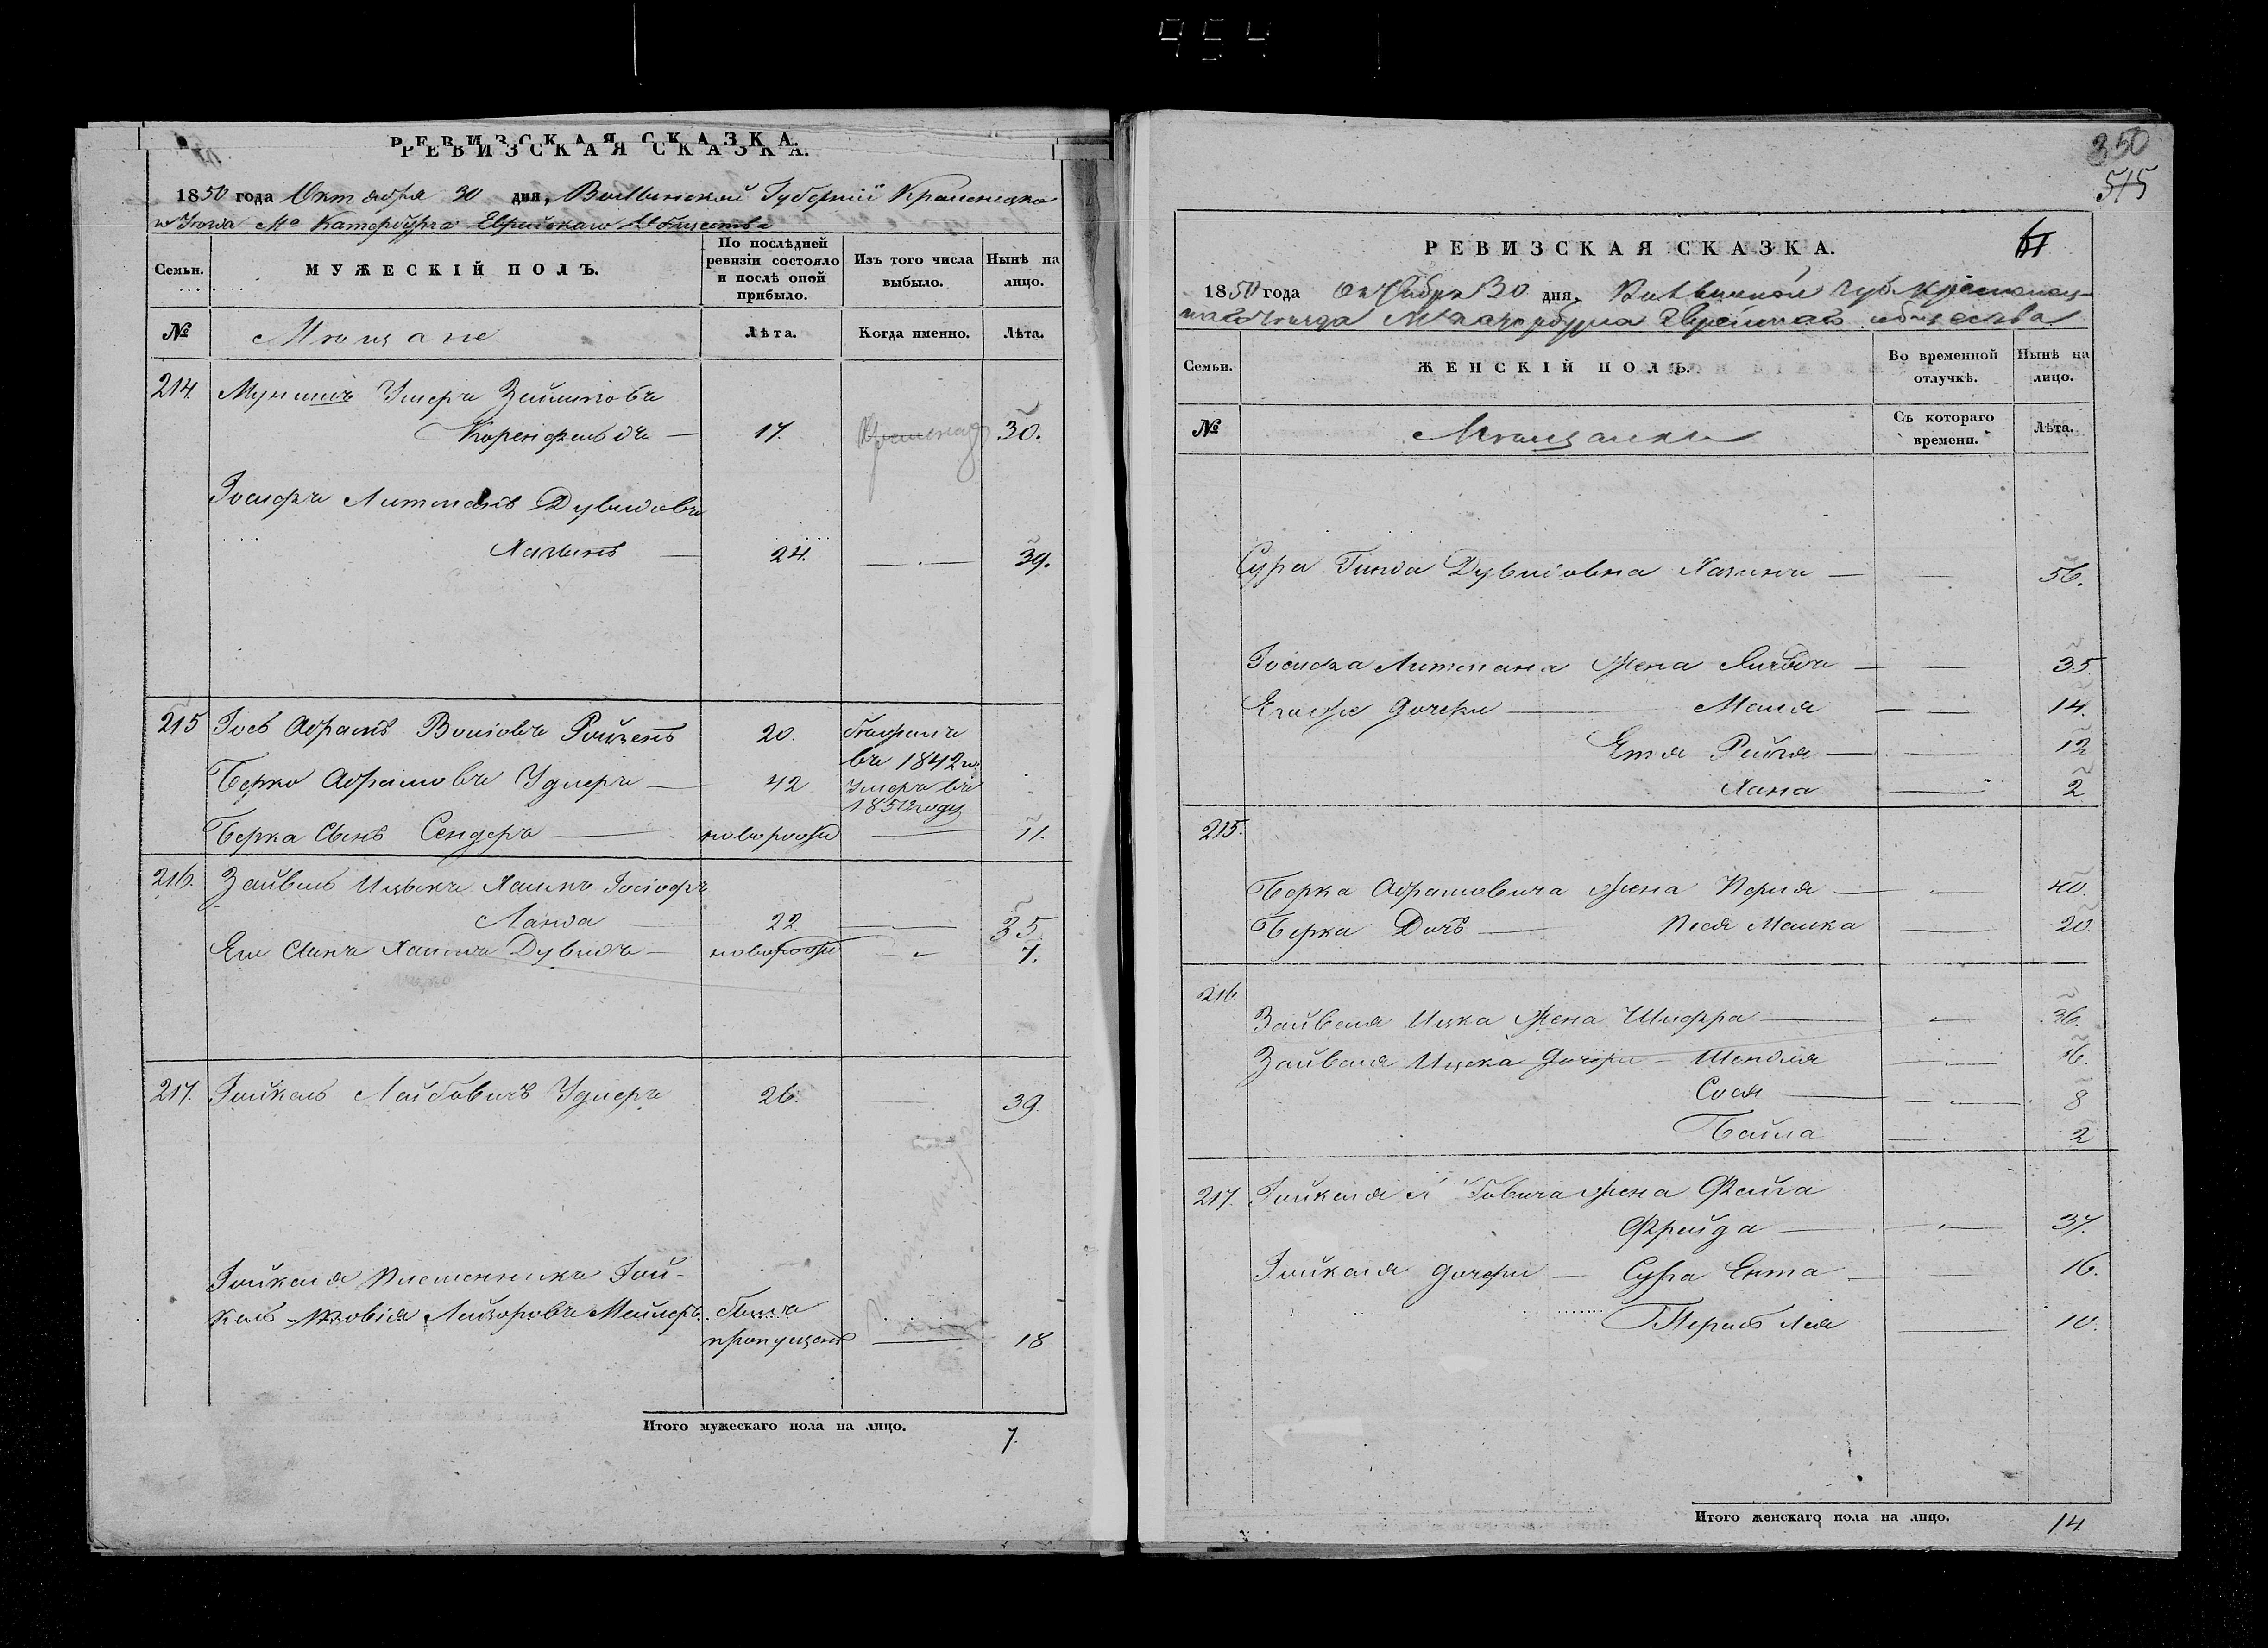 954
РЕВИЗСКАЯ СКАЗКА.
РЕВИЗСКАЯ СКАЗКА.
1850 года Октября 30 дня, Волынской Губерніи Кременецка
го Уезда Мª Катербурга Еврейскаго Общества
Семьи.
МУЖЕСКІЙ ПОЛЪ.
По послѣдней ревизіи состояло и послѣ оной прибыло.
Изъ того числа выбыло.
Нынѣ на лицо.
№
Мѣщане
Лѣта.
Когда именно.
Лѣта.
214. Мунишъ Умеръ
Коренфельдъ — 17. 30.
Іосифъ Литманъ Дувидовъ
Хазинъ — 24. — 39.
215 Іосъ Абрамъ Ройзенъ 20.
въ 1842 г.
Берко Абрамовъ Удлеръ — 42 Умеръ въ
1850 году
Берка Сынъ Сендеръ — новорожд — 11.
216. Зайвель Ицъкъ Хаимъ Іосіофъ
Ланда 22 — 35.
Его Сынъ Хаимъ Дувидъ — новорожд — 7.
217. Іойкель Лейбовичъ Удлеръ 26. — 39.
Іойкеля Племенникъ Іой-
кель Товія Лейзоровъ Мейлеръ былъ
пропущенъ — 18
Итого мужескаго пола на лицо. 7.
350
515
РЕВИЗСКАЯ СКАЗКА.
1850 года Октября 30 дня, Волынской Губ. Кременец-
каго Уезда М. Катербурга Еврейскаго общества
Семьи.
ЖЕНСКІЙ ПОЛЪ.
Во временной отлучкѣ.
Нынѣ на лицо.
№
Мѣщанки
Съ котораго времени.
Лѣта.
Сура Гинда Дувидовна Хазинъ — — 56.
Іосифа Литмана Жена — — 35.
Егожъ дочери — Маля — 14.
Етя Рейзя — — 12
Хана — 2
215.
Берка Абрамовича Жена Перля — — 40.
Берка Дочь — Песя Малка — 20.
216.
Зайвеля Ицка Жена Шифра — — 36.
Зайвеля Ицка Дочери — Шендля — 16.
Сося — — 8
Бейла — 2
217. Іойкеля Жена Фейга
Фрейда — — 37.
Іойкеля дочери — Сура Ента — — 16.
Перль Лея — 10.
Итого женскаго пола на лицо. 14